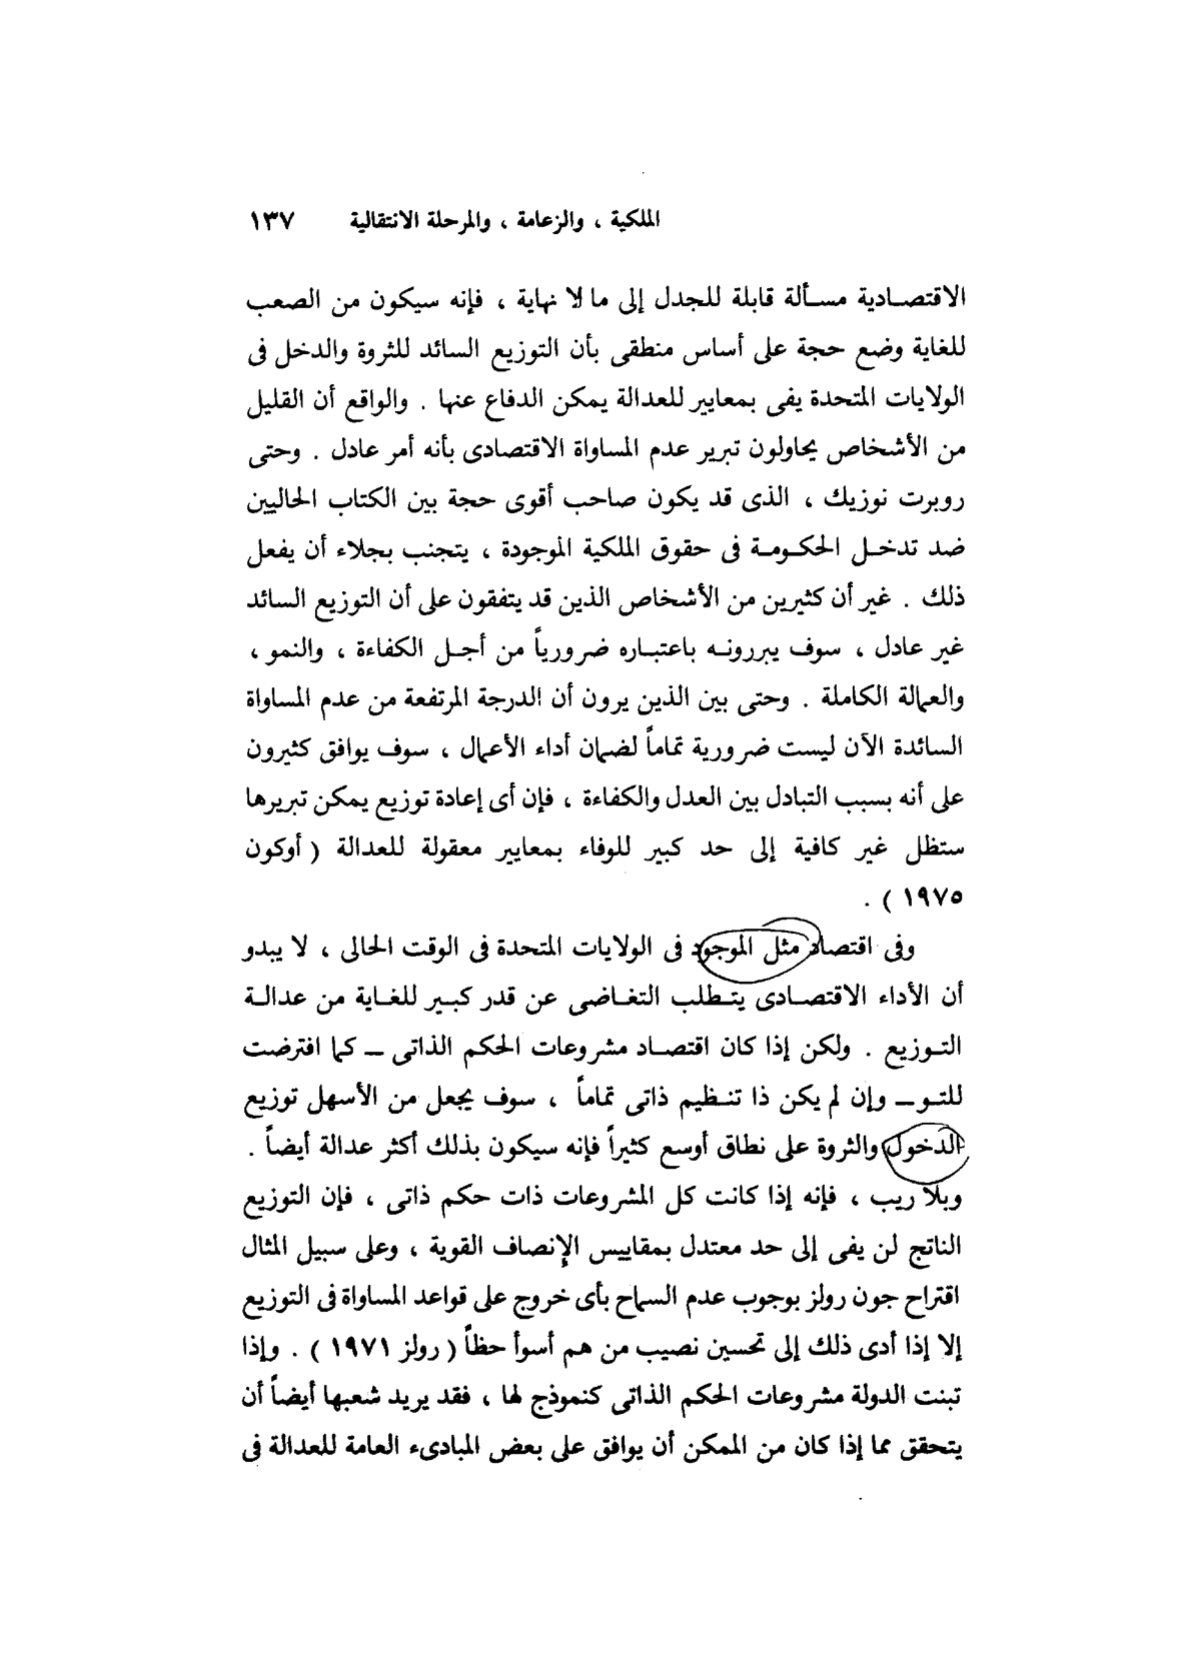 الملكية ، والزعامة ، والمرحلة الانتقالية ١٣٧
الاقتصادية مسألة قابلة للجدل إلى ما لا نهاية ، فإنه سيكون من الصعب
للغاية وضع حجة على أساس منطقى بأن التوزيع السائد للثروة والدخل فى
الولايات المتحدة يفى بمعايير للعدالة يمكن الدفاع عنها . والواقع أن القليل
من الأشخاص يحاولون تبرير عدم المساواة الاقتصادى بأنه أمر عادل . وحتى
روبرت نوزيك ، الذى قد يكون صاحب أقوى حجة بين الكتاب الحاليين
ضد تدخل الحكومة فى حقوق الملكية الموجودة ، يتجنب بجلاء أن يفعل
ذلك . غير أن كثيرين من الأشخاص الذين قد يتفقون على أن التوزيع السائد
غير عادل ، سوف يبررونه باعتباره ضرورياً من أجل الكفاءة ، والنمو ،
والعمالة الكاملة . وحتى بين الذين يرون أن الدرجة المرتفعة من عدم المساواة
السائدة الآن ليست ضرورية تماماً لضمان أداء الأعمال ، سوف يوافق كثيرون
على أنه بسبب التبادل بين العدل والكفاءة ، فإن أى إعادة توزيع يمكن تبريرها
ستظل غير كافية إلى حد كبير للوفاء بمعايير معقولة للعدالة ( أوكون
١٩٧٥ ) .
وفى اقتصاد مثل الموجود فى الولايات المتحدة فى الوقت الحالى ، لا يبدو
أن الأداء الاقتصادى يتطلب التغاضى عن قدر كبير للغاية من عدالة
التوزيع . ولكن إذا كان اقتصاد مشروعات الحكم الذاتى ــ كما افترضت
للتو ــ وإن لم يكن ذا تنظيم ذاتى تماماً ، سوف يجعل من الأسهل توزيع
الدخول والثروة على نطاق أوسع كثيراً فإنه سيكون بذلك أكثر عدالة أيضاً .
وبلا ريب ، فإنه إذا كانت كل المشروعات ذات حكم ذاتى ، فإن التوزيع
الناتج لن يفى إلى حد معتدل بمقاييس الإنصاف القوية ، وعلى سبيل المثال
اقتراح جون رولز بوجوب عدم السماح بأى خروج على قواعد المساواة فى التوزيع
إلا إذا أدى ذلك إلى تحسين نصيب من هم أسوأ حظاً ( رولز ١٩٧١ ) . وإذا
تبنت الدولة مشروعات الحكم الذاتى كنموذج لها ، فقد يريد شعبها أيضاً أن
يتحقق مما إذا كان من الممكن أن يوافق على بعض المبادىء العامة للعدالة فى